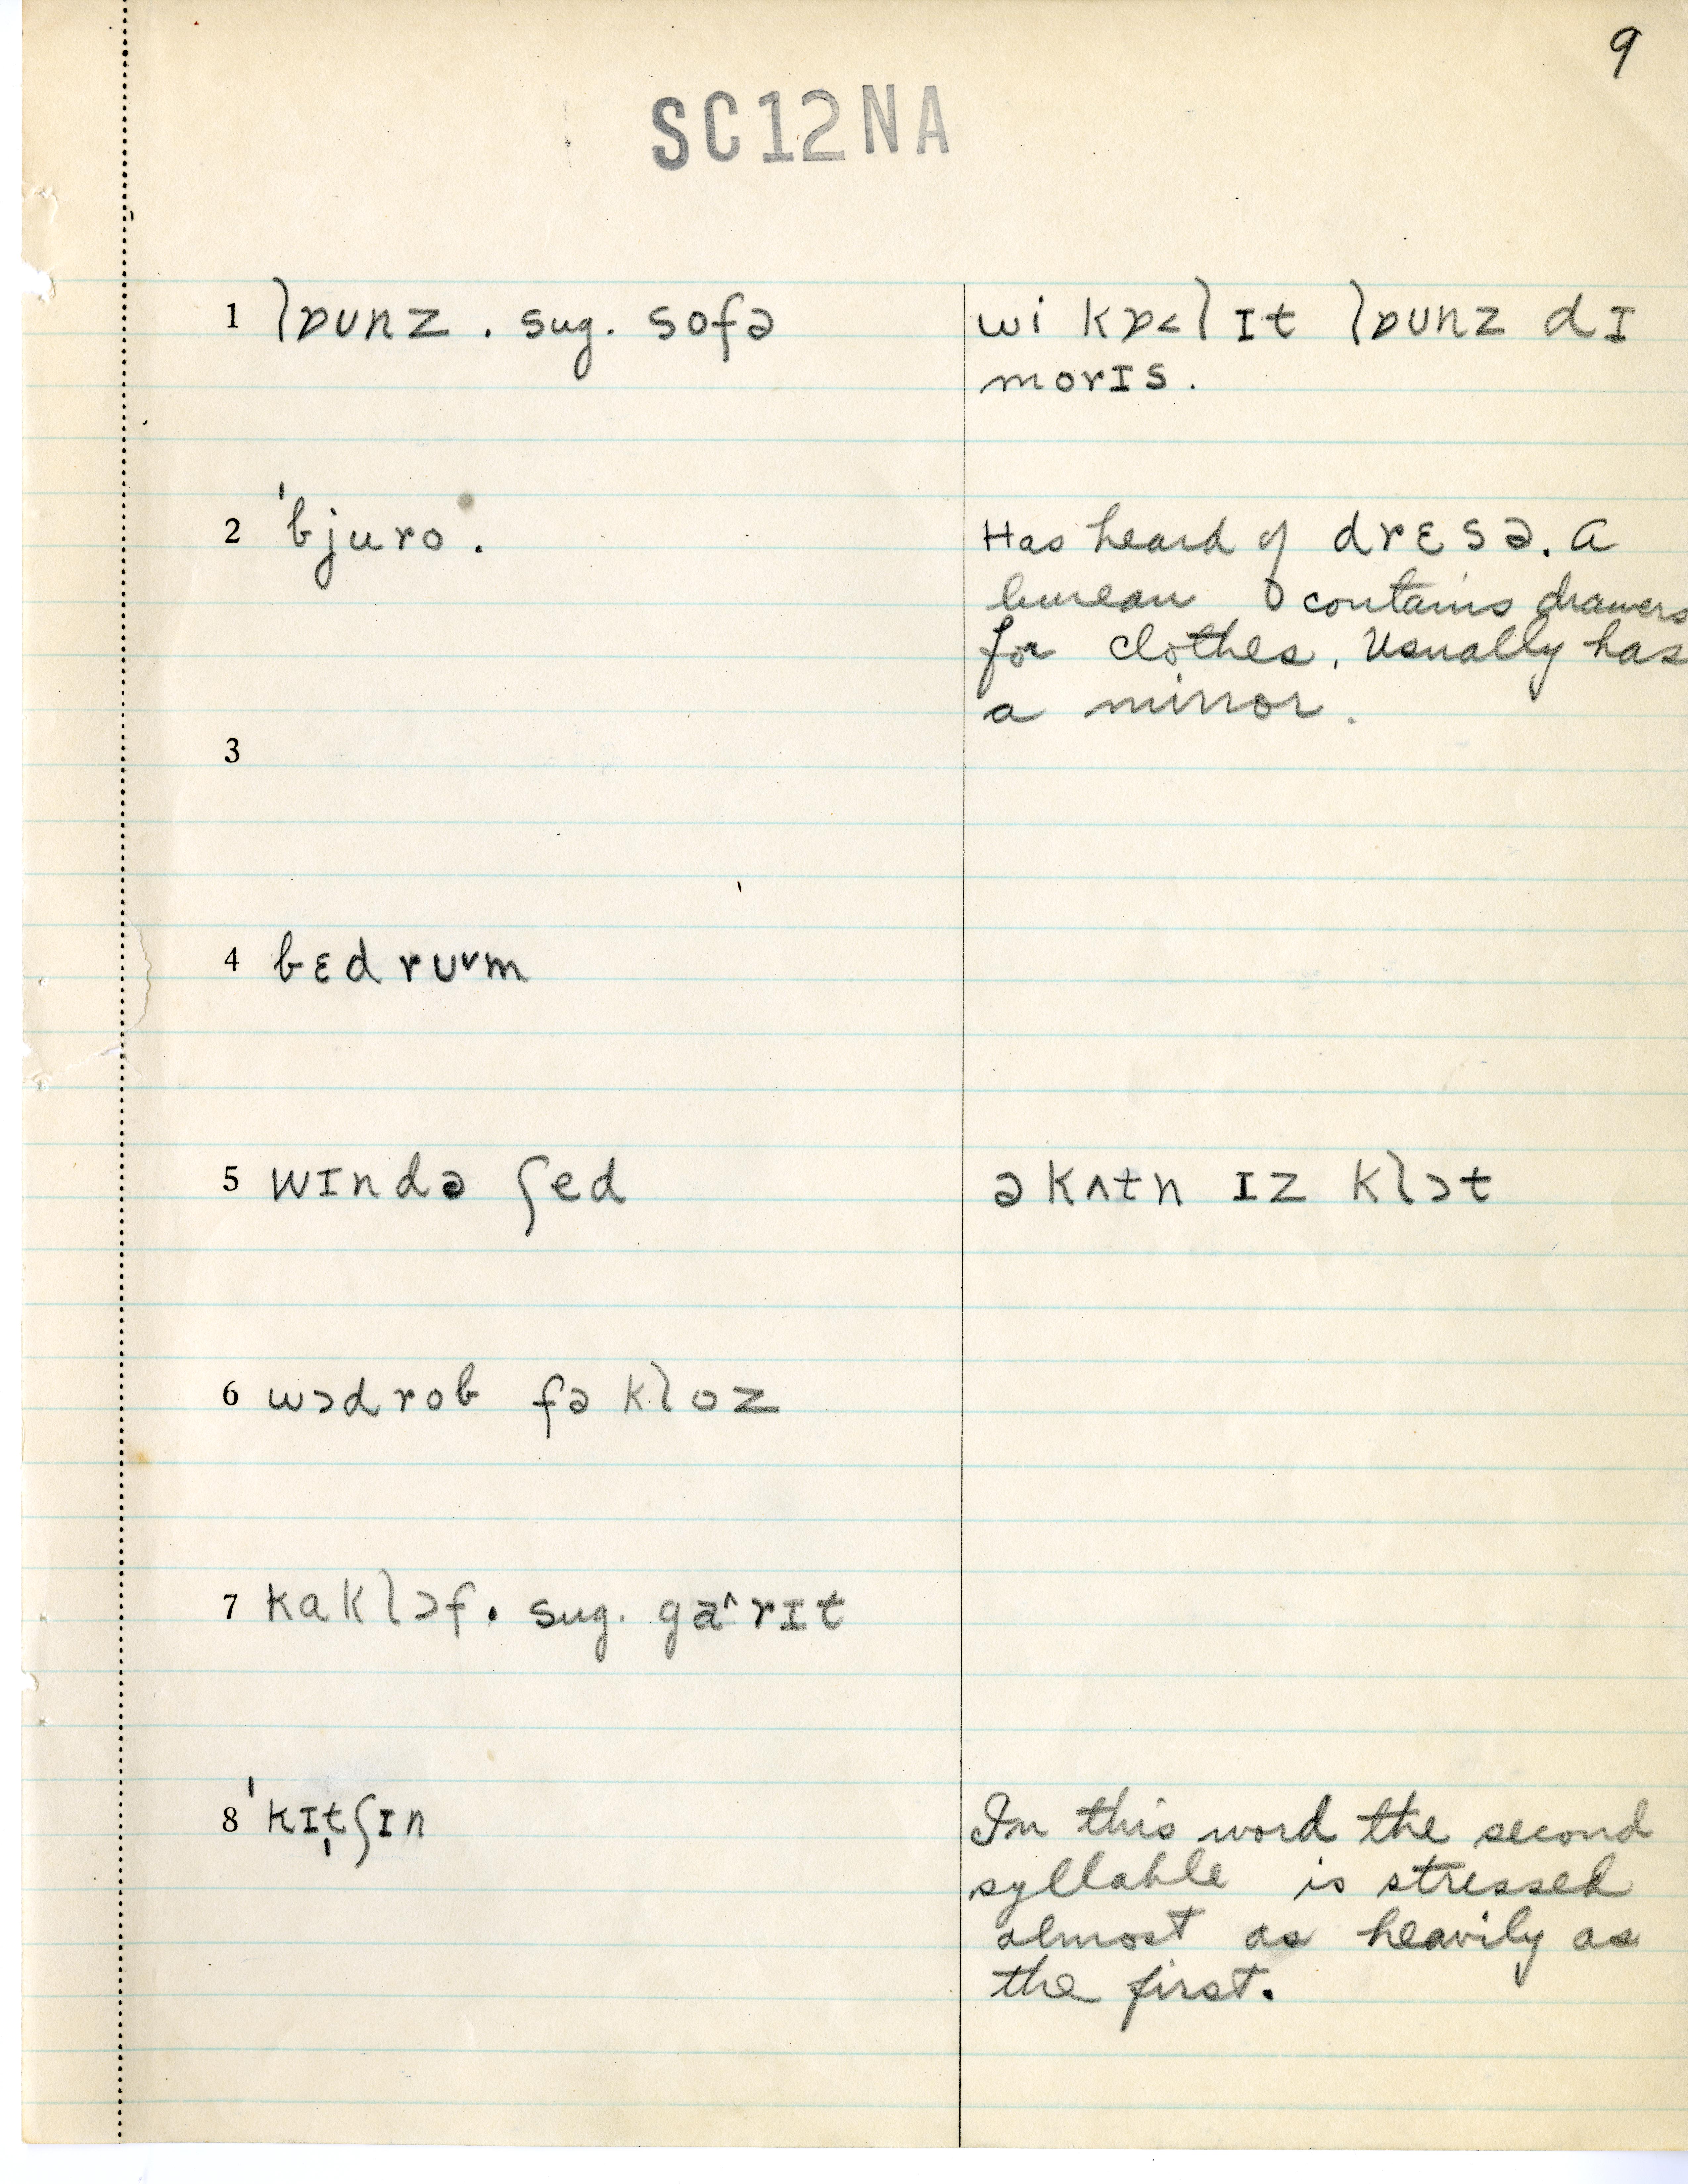 9
SC12NA
1 lɒunz . sug. sofə
wi kɒ<lɪt lɒunz dɪ
morɪs.
2 'bjuro.
Has heard of drɛsə. A
bureau contains drawers
for clothes. Usually has
a mirror.
3
4 bɛdrʊᵛm
5 wɪndə ʃed
ə kʌtn ɪz klɔt
6 wɔdrob fə kloz
7 kaklɔf. sug. ga^rɪt
8 'kɪt̩ʃɪn
In this word the second
syllable is stressed
almost as heavily as
the first.